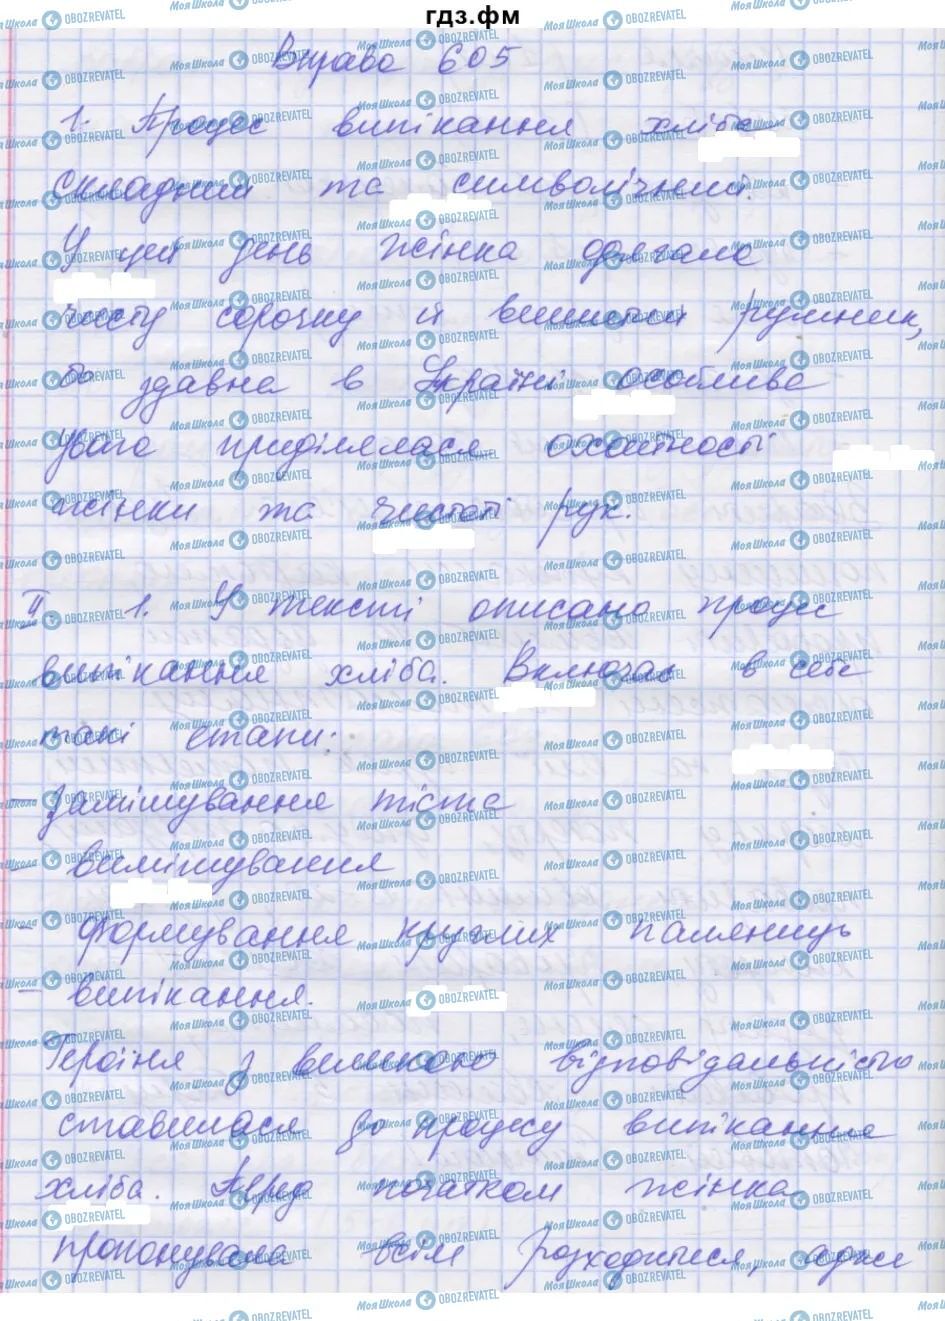 гдз.фм
Вправа 605
1. Процес випікання хліба
складний та символічний.
У цей день жінка одягала
чисту сорочку й вишитий рушник,
бо здавна в Україні особлива
увага приділялася охайності
жінки та чистоті рук.
II 1. У тексті описано процес
випікання хліба. Включає в себе
такі етапи:
замішування тіста
- вимішування
- формування круглих паляниць
- випікання.
Героїня з великою відповідальністю
ставилася до процесу випікання
хліба. Перед початком жінка
пропонувала всім розходитися, адже